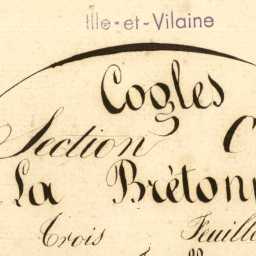 Ille-et-Vilaine
Cogles
Section C
La Bréton
Trois Feuill